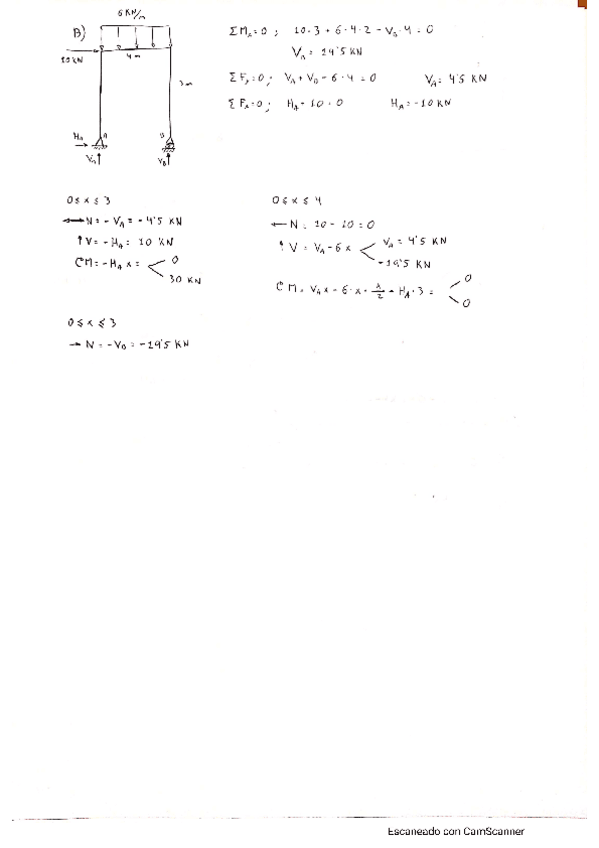 6 KN/m
B)
4 m
10 KN
3 m
HA A B
VA VB
ΣMA=0 ; 10·3 + 6·4·2 - VB·4 = 0
VB = 19'5 KN
ΣFy=0 ; VA + VB - 6·4 = 0 VA = 4'5 KN
ΣFx=0 ; HA + 10 = 0 HA = -10 KN
0 ≤ x ≤ 3
N = -VA = -4'5 KN
↑V = -HA = 10 KN
M = -HA x = 0
30 KN
0 ≤ x ≤ 3
→ N = -VB = -19'5 KN
0 ≤ x ≤ 4
← N = 10 - 10 = 0
↑ V = VA - 6x VA = 4'5 KN
-19'5 KN
M = VA x - 6·x·x/2 - HA·3 = 0
0
Escaneado con CamScanner